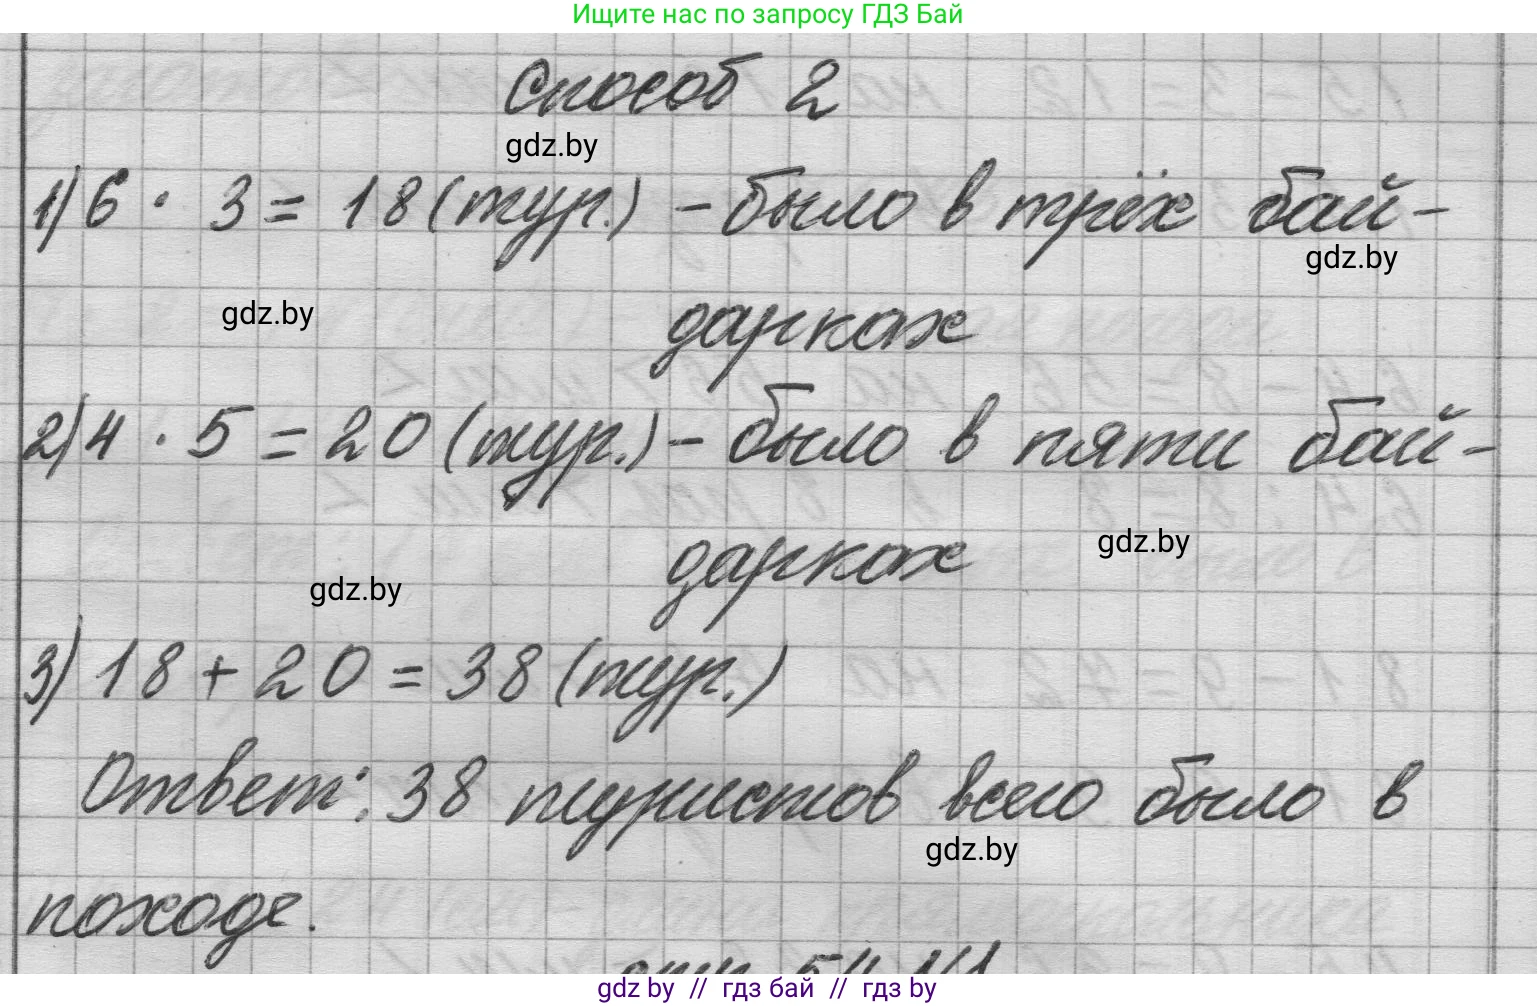 Ищите нас по запросу ГДЗ Бай
Способ 2
gdz.by
1) 6 · 3 = 18 (тур.) - было в трёх бай-
gdz.by
gdz.by
дарках
2) 4 · 5 = 20 (тур.) - было в пяти бай-
gdz.by
дарках
gdz.by
3) 18 + 20 = 38 (тур.)
Ответ: 38 туристов всего было в
gdz.by
походе.
gdz by // гдз бай // гдз by